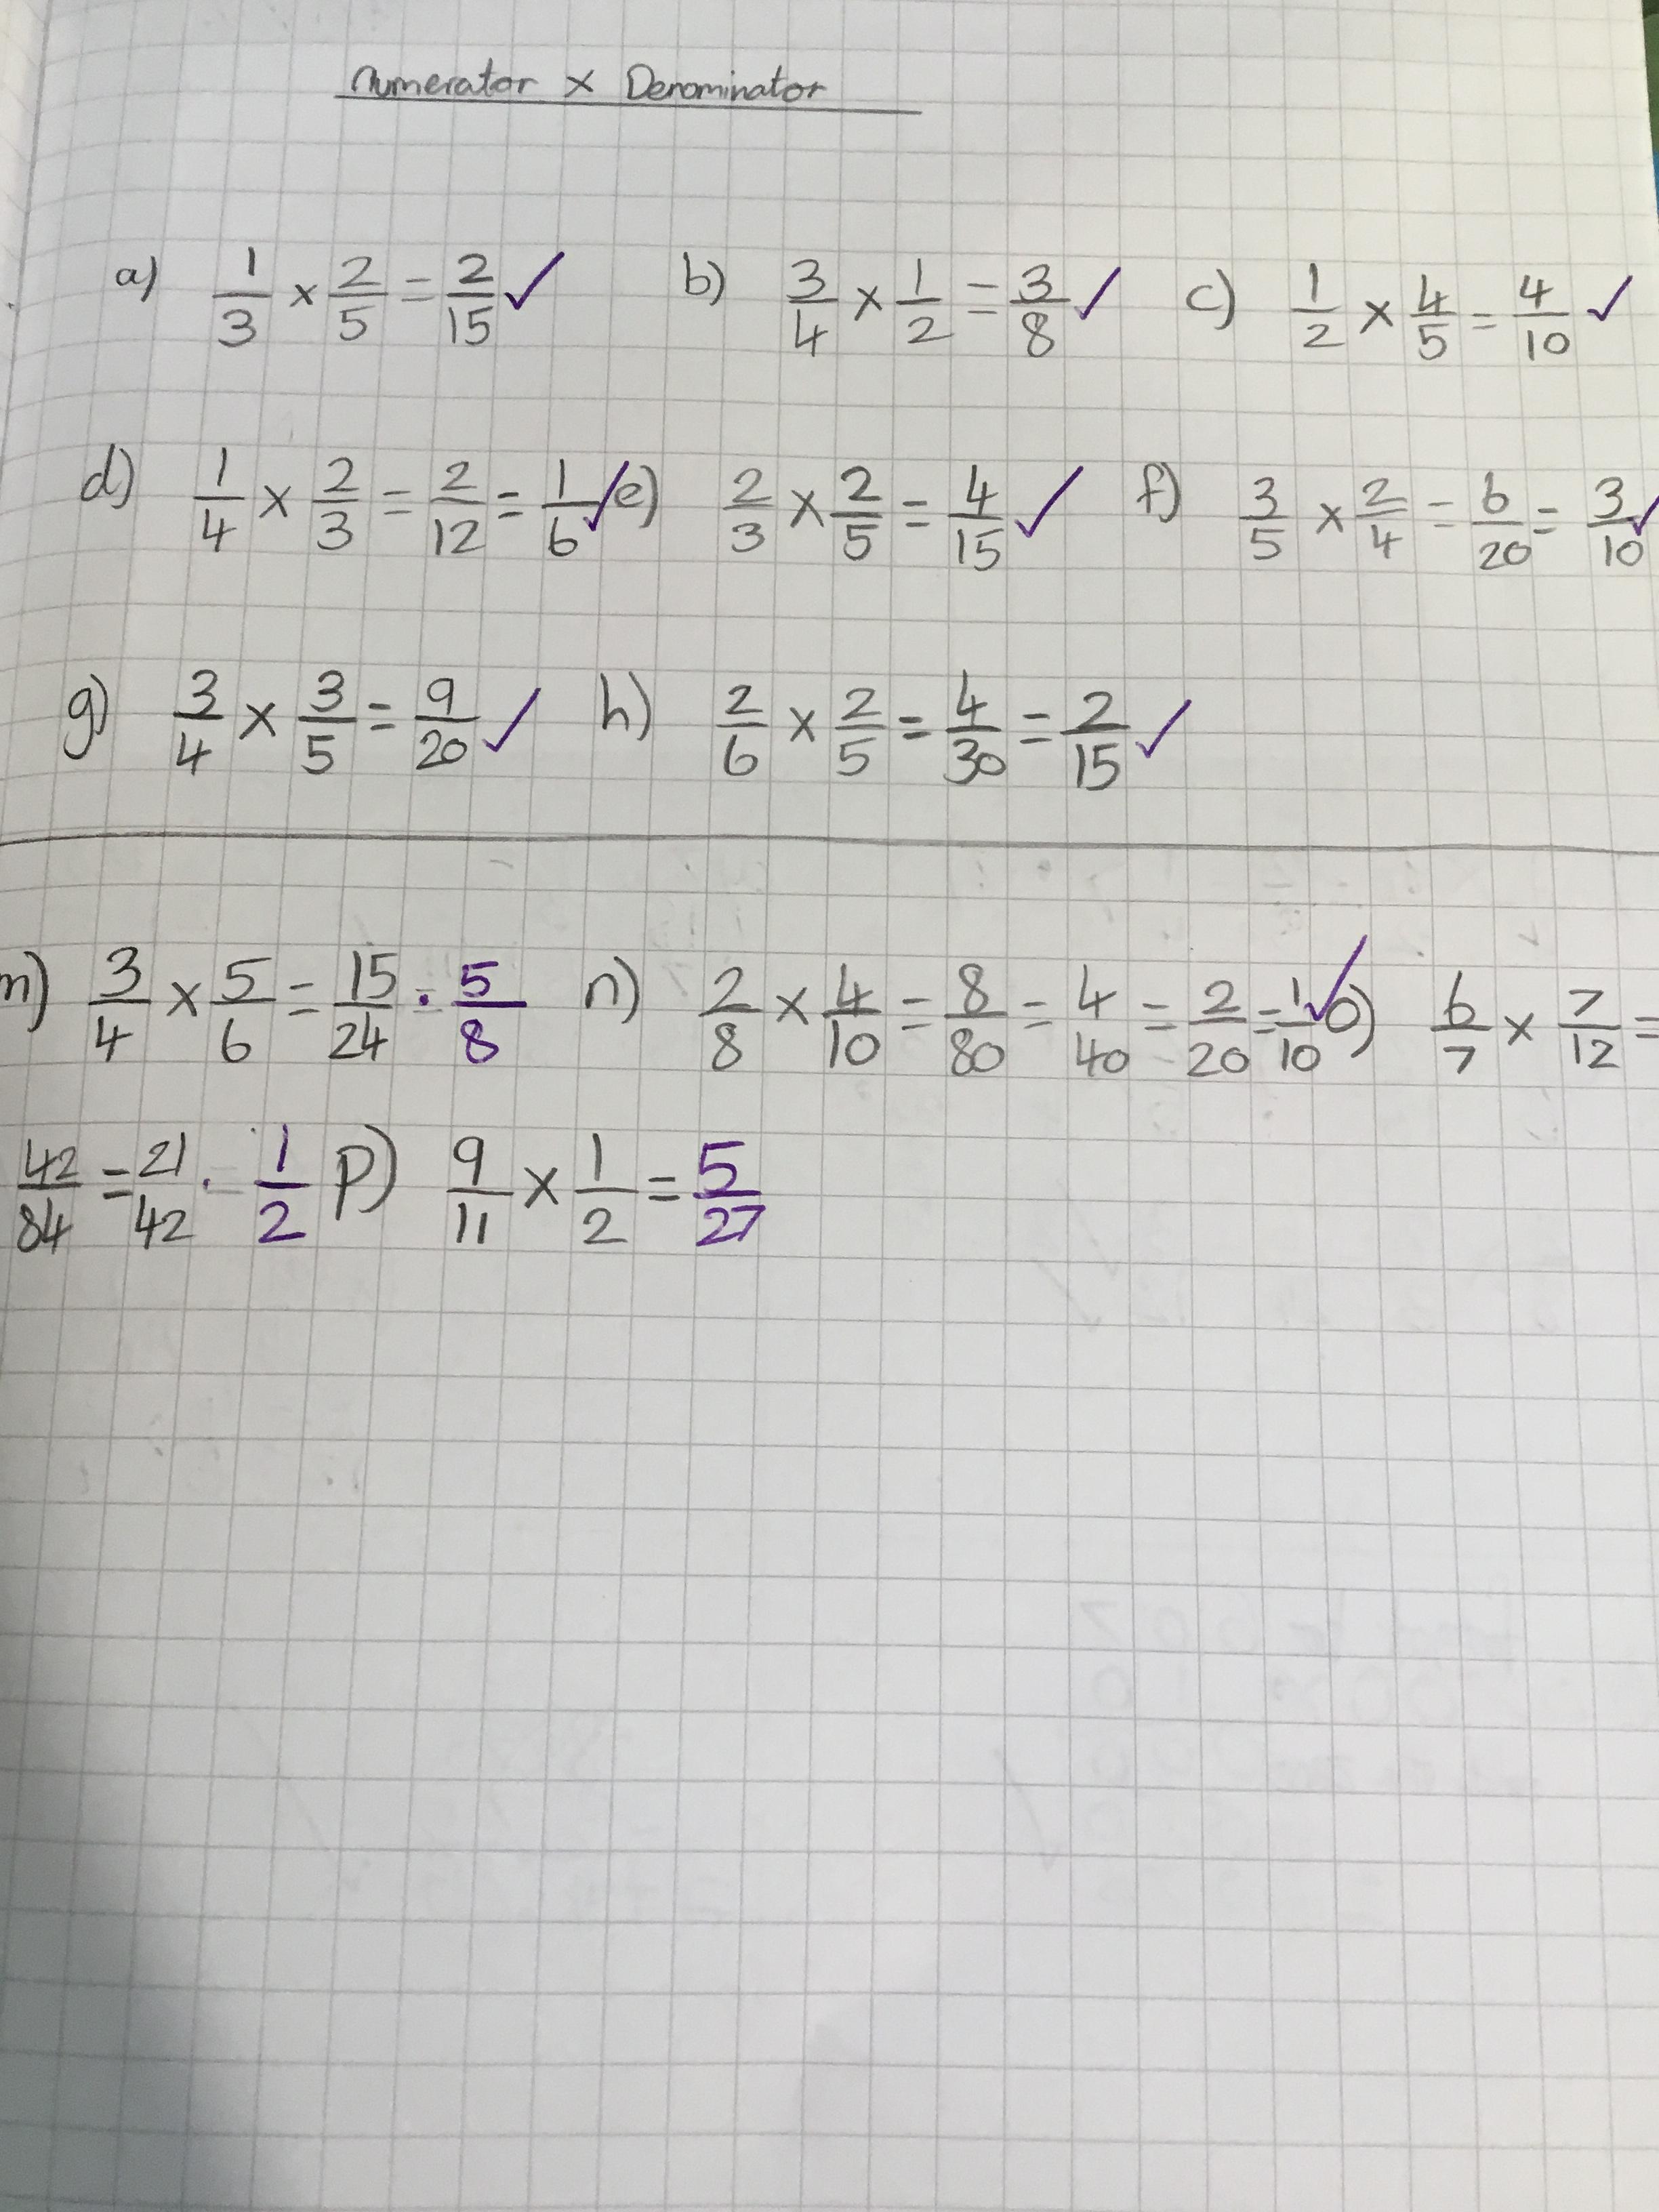 Numerator × Denominator
a) 1/3 × 2/5 = 2/15 ✓ b) 3/4 × 1/2 = 3/8 ✓ c) 1/2 × 4/5 = 4/10 ✓
d) 1/4 × 2/3 = 2/12 = 1/6 ✓ e) 2/3 × 2/5 = 4/15 ✓ f) 3/5 × 2/4 = 6/20 = 3/10 ✓
g) 3/4 × 3/5 = 9/20 ✓ h) 2/6 × 2/5 = 4/30 = 2/15 ✓
m) 3/4 × 5/6 = 15/24 · = 5/8 n) 2/8 × 4/10 = 8/80 = 4/40 = 2/20 = 1/10 ✓ o) 6/7 × 7/12 =
42/84 = 21/42 · = 1/2 p) 9/11 × 1/2 = 5/27